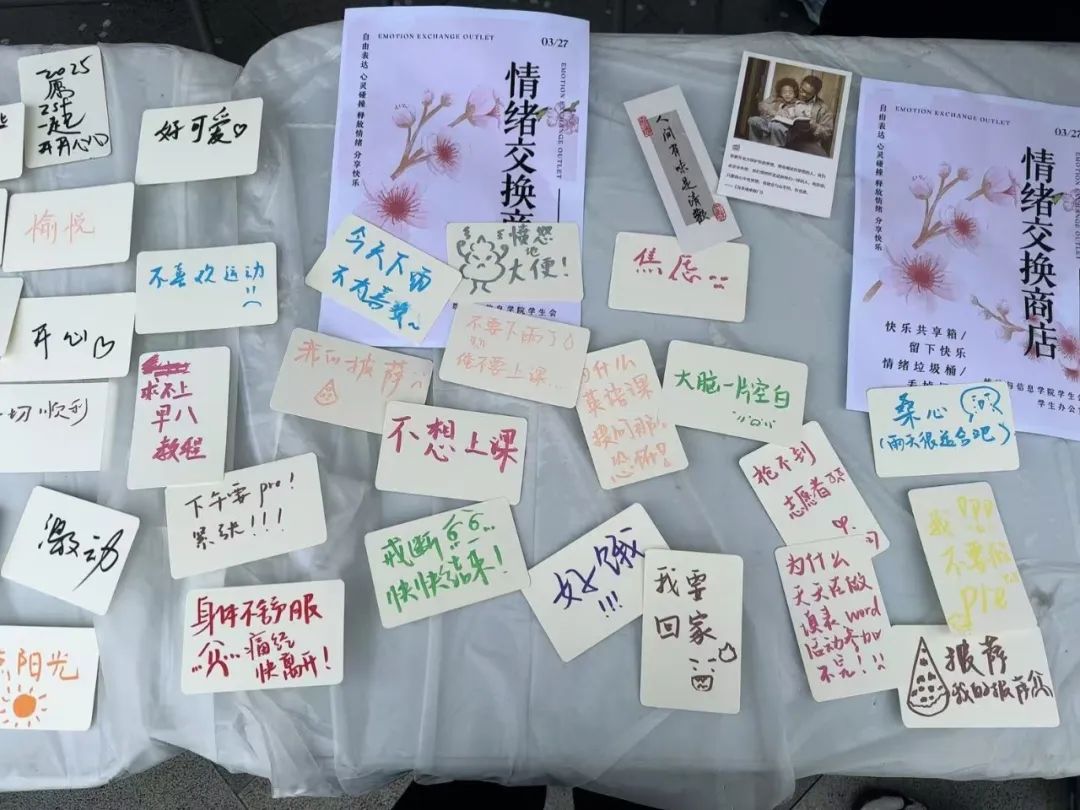 EMOTION EXCHANGE OUTLET
03/27
自由表达 心灵碰撞 释放情绪 分享快乐
情绪交换商
EMOTION EXCHANGE OUTLET
信息学院学生会
人间有味是清欢
EMOTION EXCHANGE OUTLET
03/2
自由表达 心灵碰撞 释放情绪 分享快乐
情绪交换商店
快乐共享箱/
留下快乐
情绪垃圾桶/
与信息学院学生会
学生办公
2025
一起
开开心心
好可爱
愉悦
不喜欢运动
今天下雨
不太喜欢~
愤怒
地
大便!
焦虑
开心
我的披萨
不要下雨了
俺不要上课...
为什么
英语课
提问那
恐怖!
大脑一片空白
桑心
(雨天很适合吧)
切顺利
求不上
早八
教程
不想上课
抢不到
志愿者
下午要pre!
紧张!!!
激动
戒断
快快结束!
好饿
!!!
我要
回家
为什么
天天在放
word
活动参加
不完!
我
不要做
pre
身体不舒服
痛经
快离开!
阳光
披萨
我的披萨